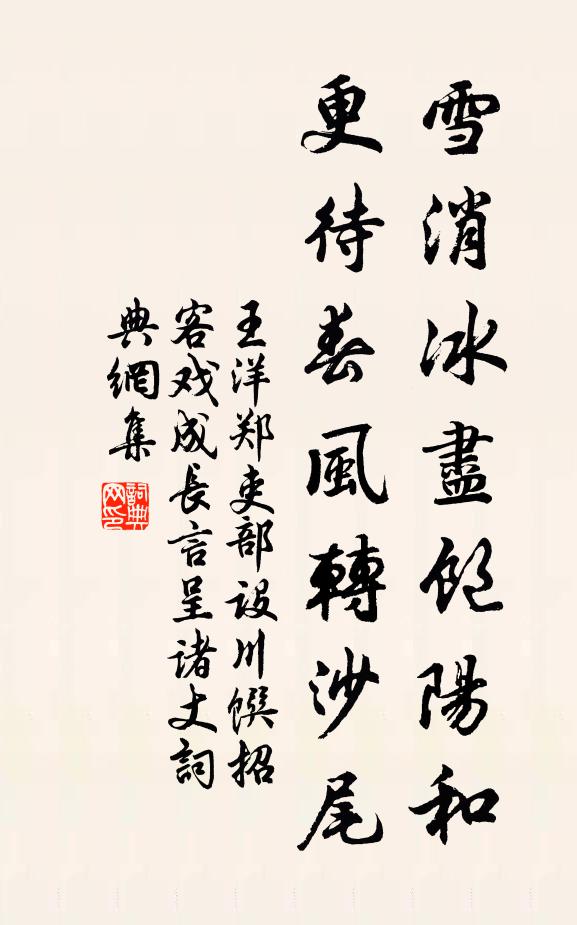 雪消冰盡飽陽和
更待春風轉沙尾
王洋郑吏部设川馔招
客戏成长言呈诸丈詞
典網集
詞典网印